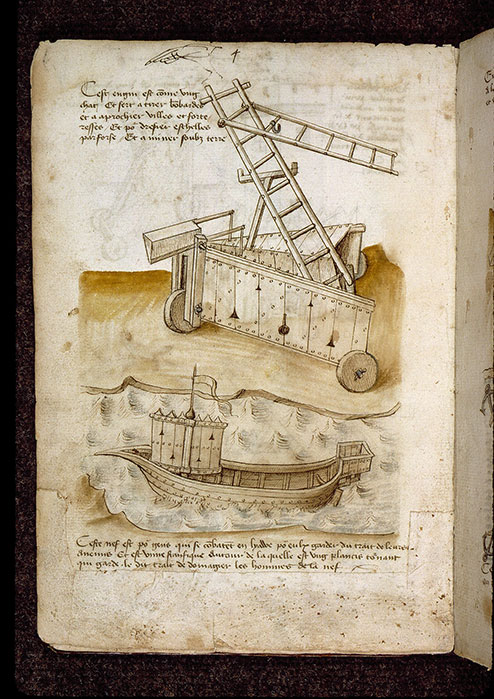 4
Cest engin est cõme vng
chat Et sert a tirer bõbardes
et a aprochier villes et forte
resses Et po᷑ dresser eschelles
par force Et a miner soubz terre
Ceste nef est po᷑ gens qui se cõbatẽt en po᷑ eulx garder du trait de leurs
Et est autour de la quelle est vng planciz tõnant
qui garde le dit trait de domagier les hommes de la nef